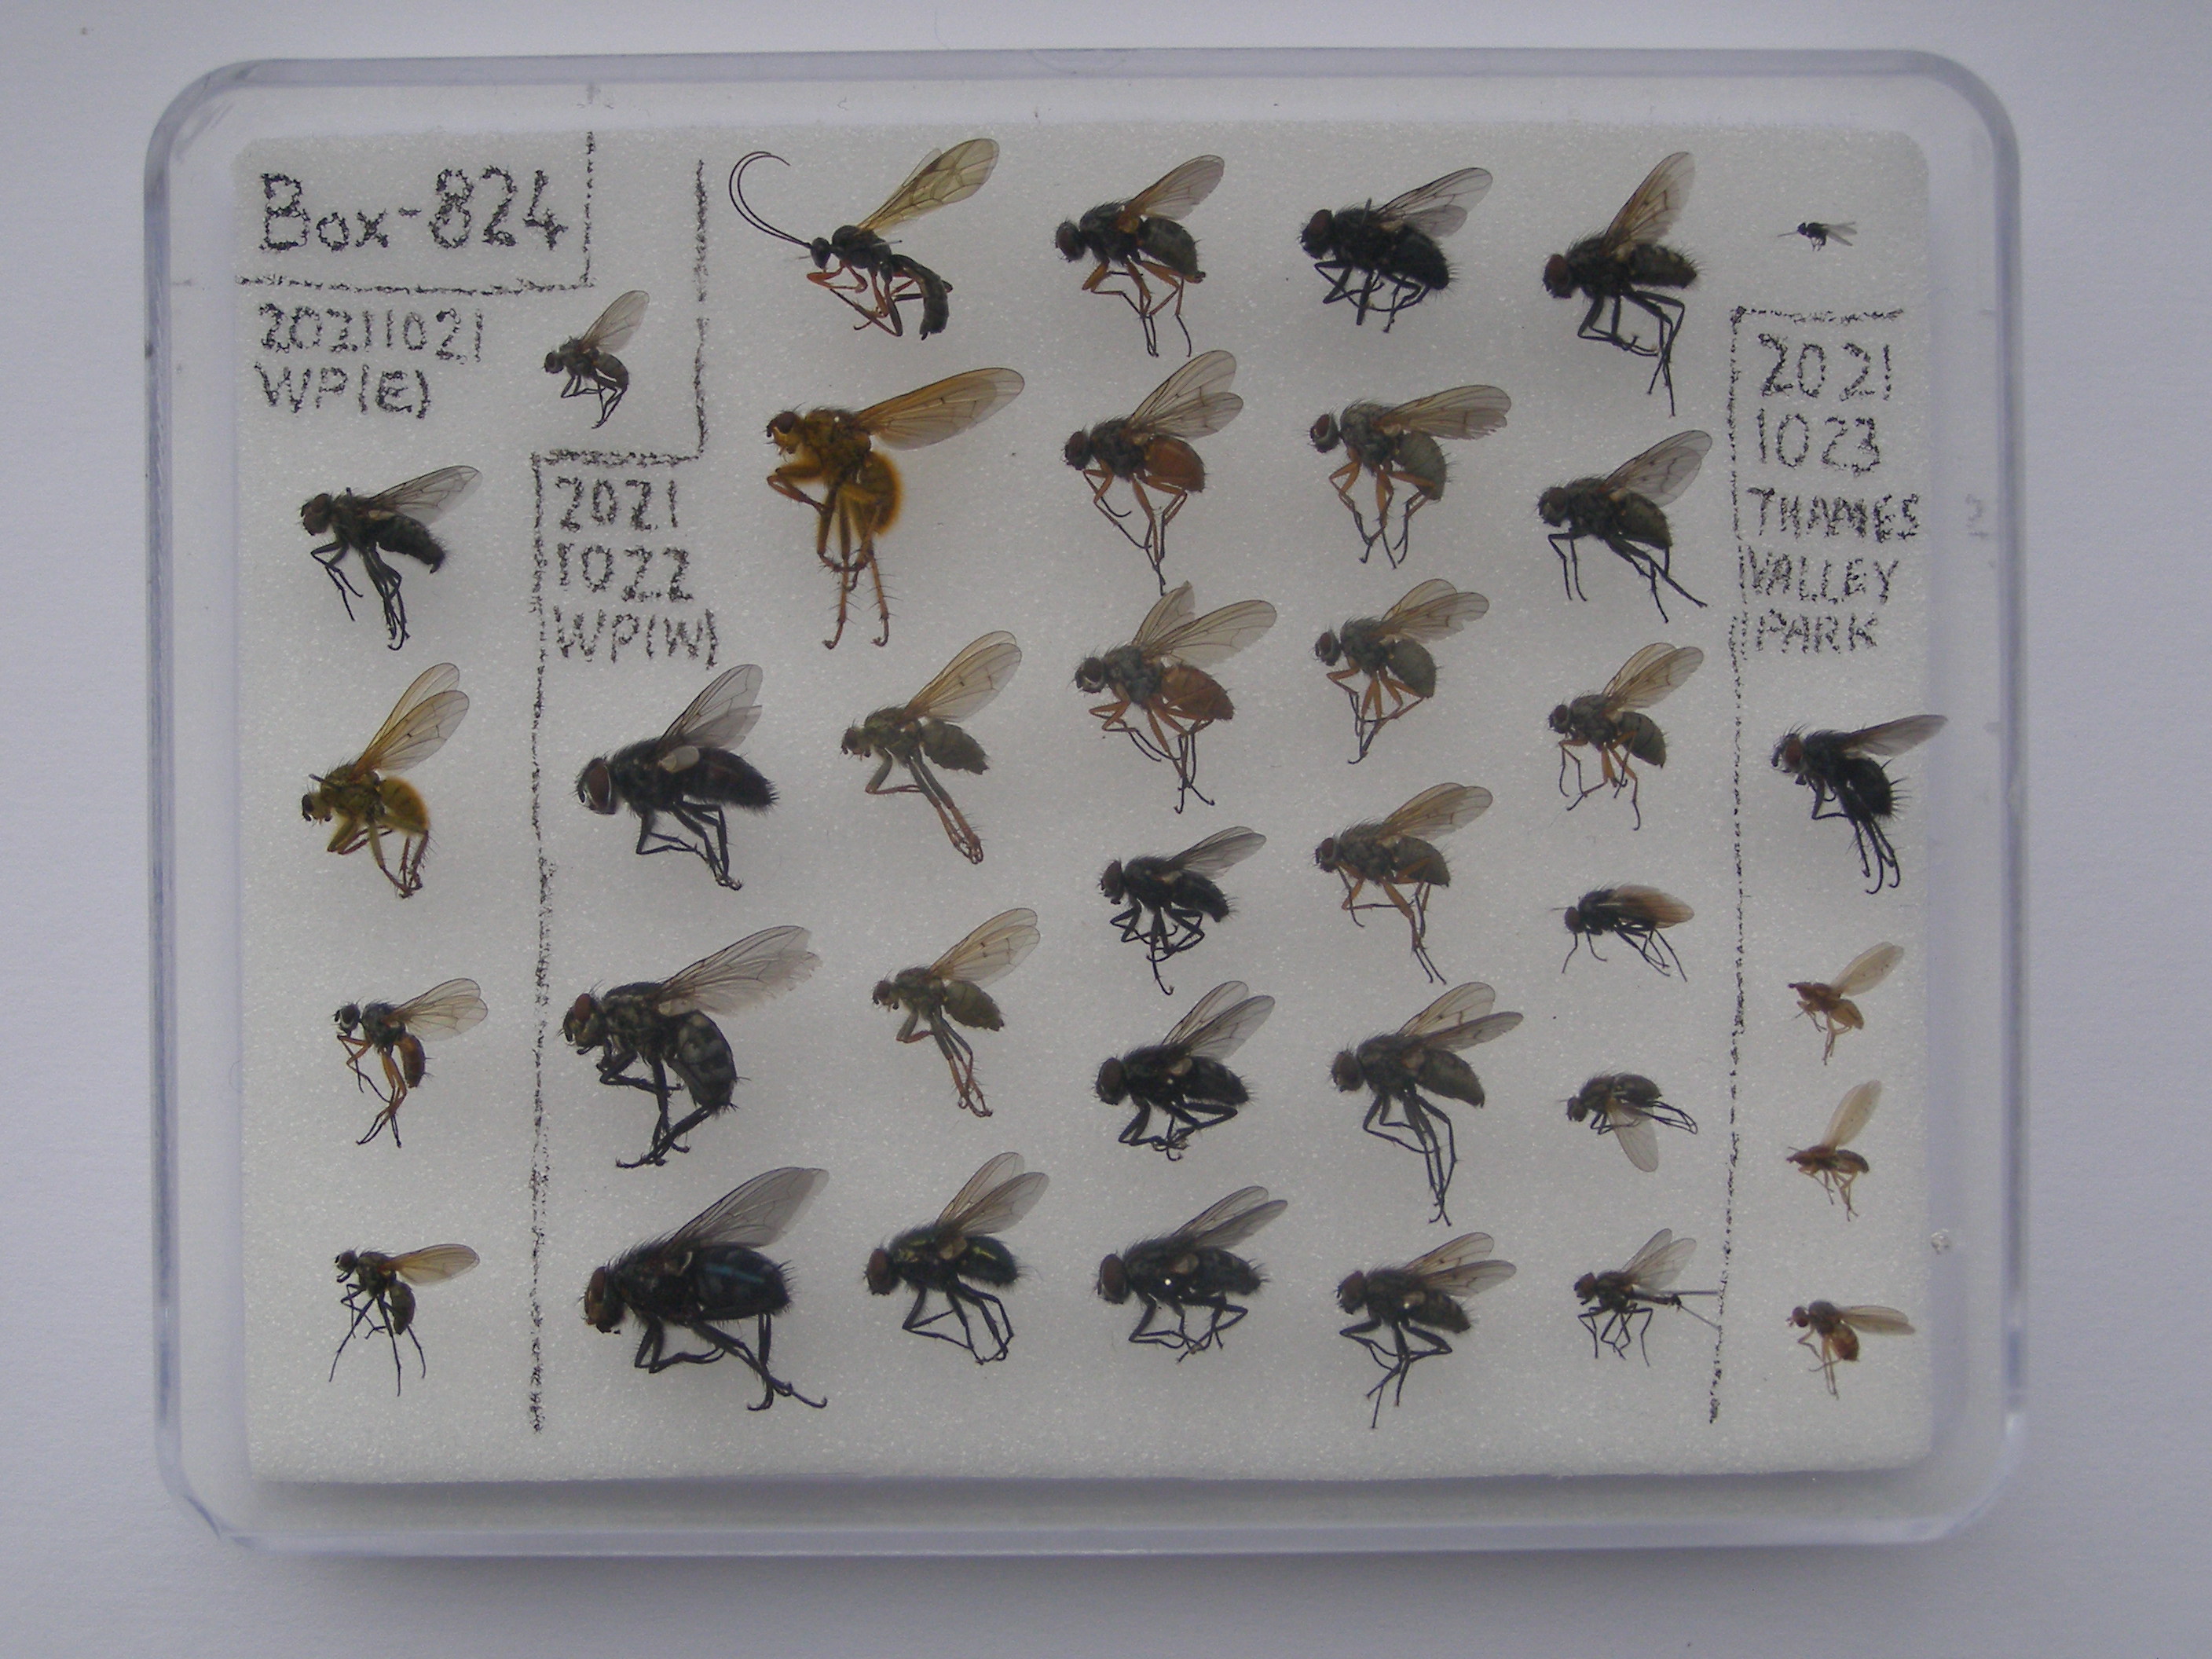 Box-824
20211021
WP(E)
2021
1022
WP(W)
2021
1023
THAMES
VALLEY
PARK